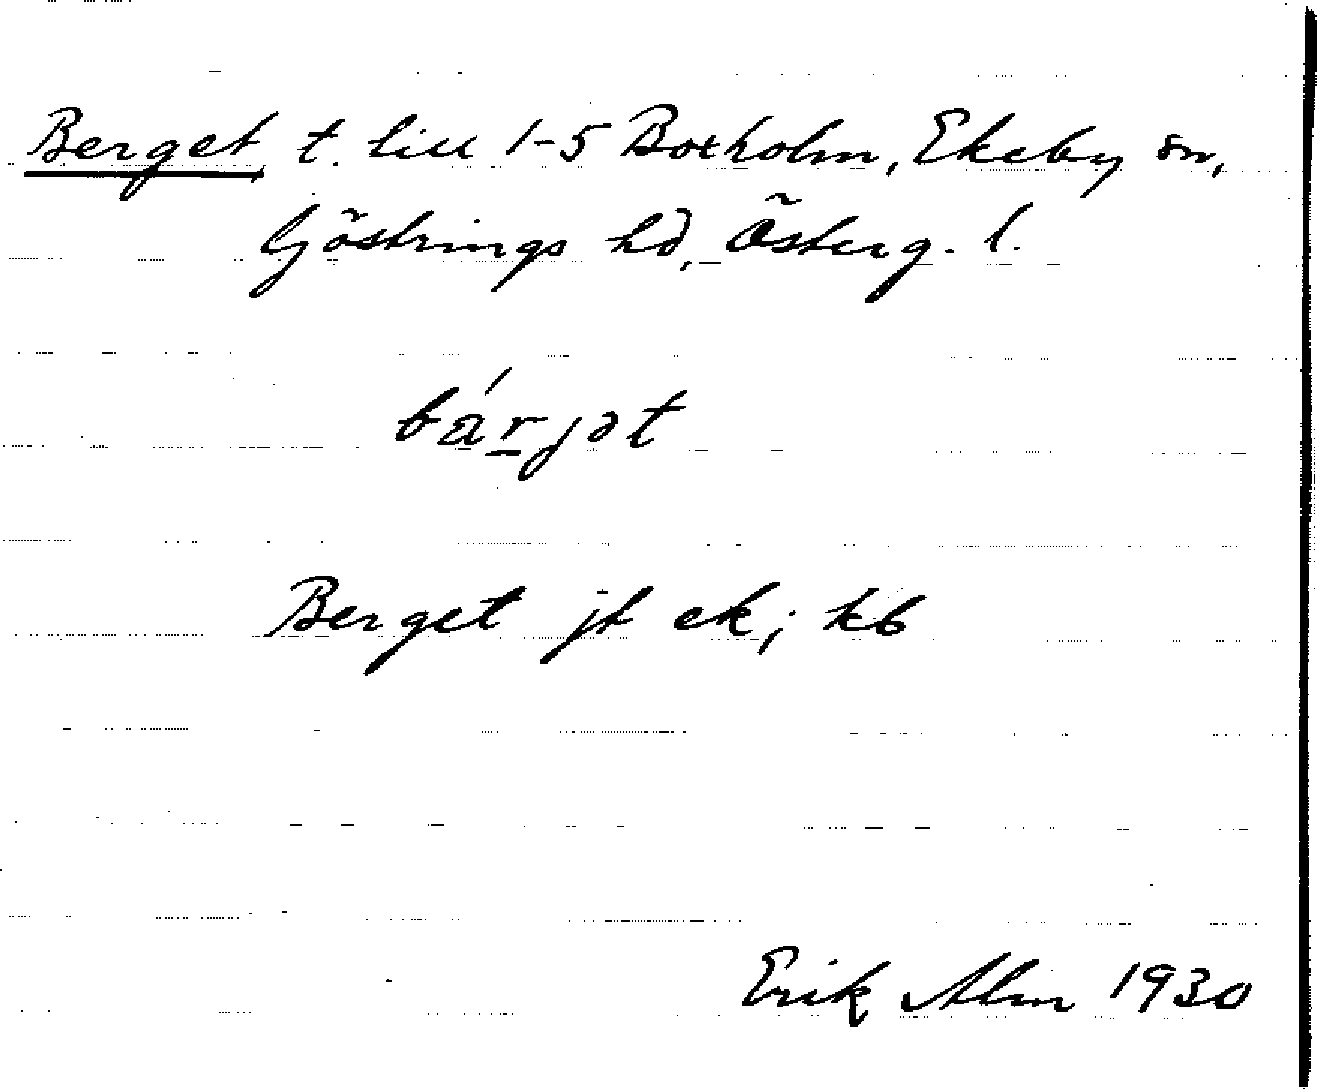 Berget, t. till 1-5 Boxholm, Ekeby sn,
Göstrings hd, Österg. l.
bárjət
Berget jb ek; kb
Erik Alm 1930